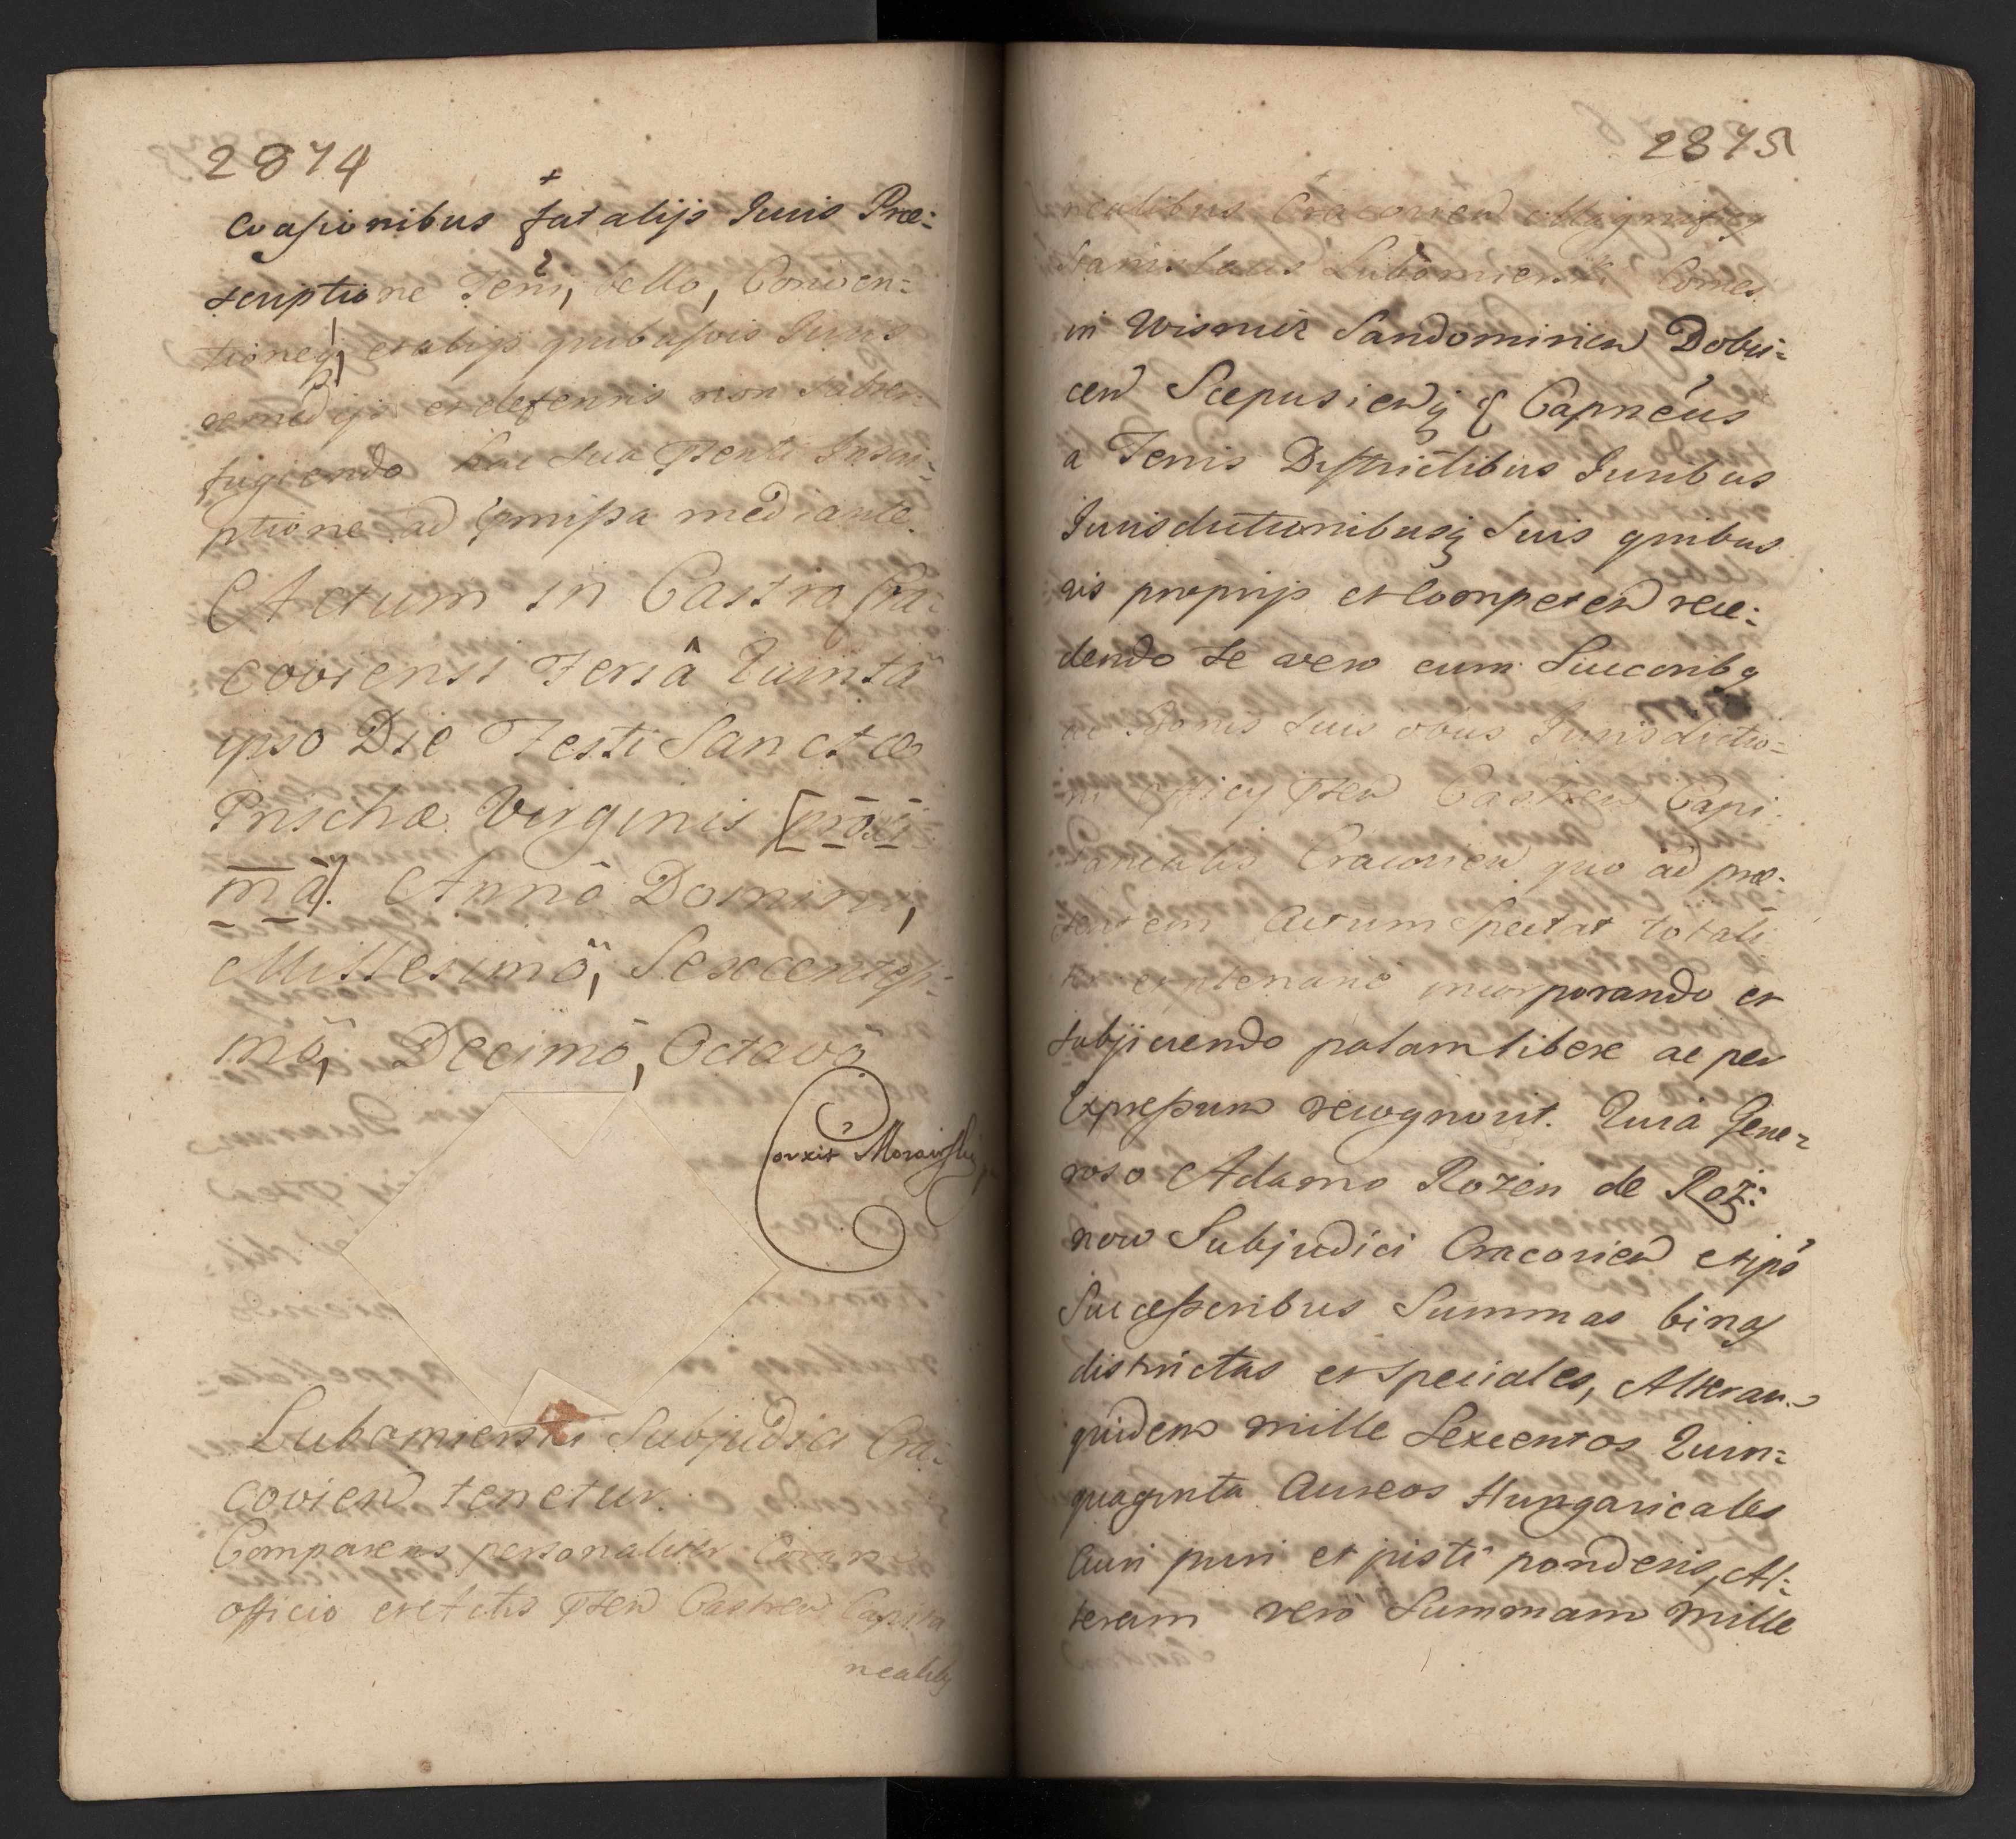 2874
Evasionibus fatalijs Iuris Præ:
scriptione Terrar, bello, Conven:
tioneq, et alijs quibusvis Iuris
remedijs et defensis non subter:
fugiendo hac sua Pnti Inscri:
ptione ad pmissa mediante.
Actum in Castro Cra:
coviensi Feriâ Quintâ
ipso Die Festi Sanctæ
Prischæ Virginis [proxi
mâ]. Anno Domini,
Millesimô, Sexcentesi:
mô, Decimô, Octavô
Correxit Morawski
Lubomierski Subjudici Cra:
covien tenetur.
Comparens personaliter Coram
officio et Actis Pnten Castren Capita
nealibq
2875
nealibus Cracovien Magnificq
Stanislaus Lubomierski Comes
in Wisnicz Sandomirien Dobci:
cen Scepusienq & Capneus
a Terris Districtibus Iuribus
Iurisdictionibusq Suis quibus
vis proprijs et Competen rece:
dendo se vero cum Succoribq
ac Bonis suis obus Iurisdictio:
ni officij Pnten Castren Capi:
tanealis Cracovien quo ad præ:
sentem Actum Spectat totali
ter et plenarie incorporando et
subjiciendo palam libere ac per
Expressum recognovit. Quia Gene:
roso Adamo Rozen de Roż:
now Subjudici Cracovien et ips
Successoribus Summas binas
districtas et speciales, Alteram
quidem mille Sexcentos Quin:
quaginta Aureos Hungaricales
Auri puri et justi ponderis, Al:
teram vero Summam mille